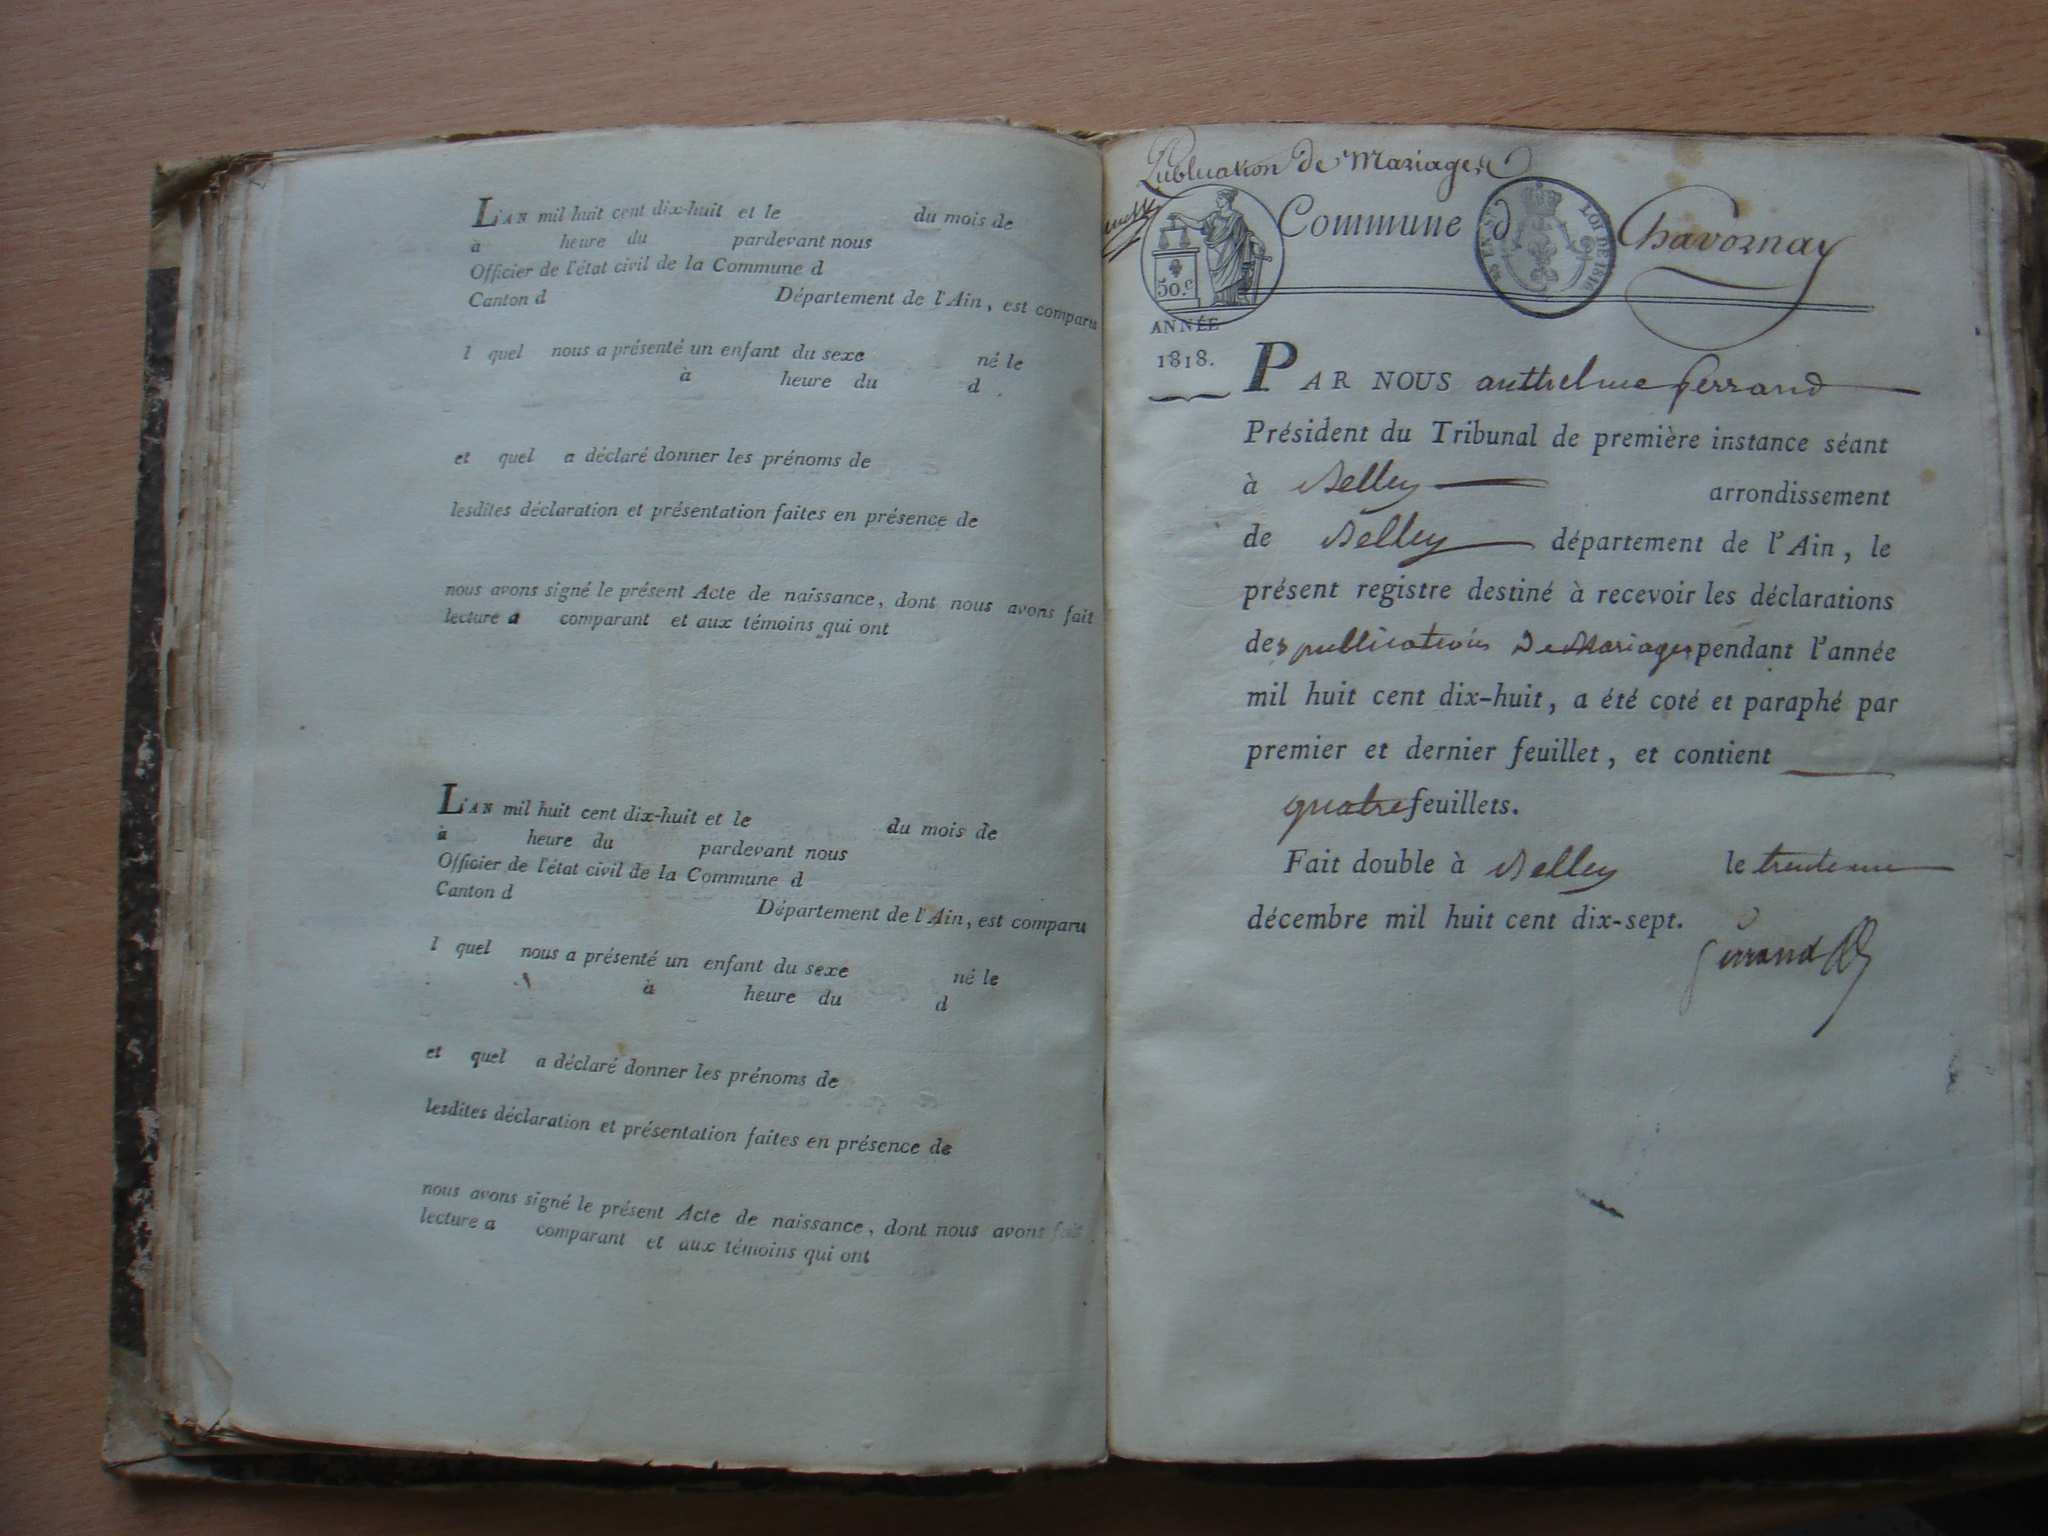 L'AN mil huit cent dix-huit et le du mois de
à heure du pardevant nous
Officier de l'état civil de la Commune d
Canton d Département de l'Ain, est comparu
l quel nous a présenté un enfant du sexe né le
à heure du d
et quel a déclaré donner les prénoms de
lesdites déclaration et présentation faites en présence de
nous avons signé le présent Acte de naissance, dont nous avons fait
lecture a comparant et aux témoins qui ont
L'AN mil huit cent dix-huit et le du mois de
à heure du pardevant nous
Officier de l'état civil de la Commune d
Canton d Département de l'Ain, est comparu
l quel nous a présenté un enfant du sexe né le
à heure du d
et quel a déclaré donner les prénoms de
lesdites déclaration et présentation faites en présence de
nous avons signé le présent Acte de naissance, dont nous avons fait
lecture a comparant et aux témoins qui ont
Publication de Mariages
Commune d Chavornay
50.c
LOI DE 1816
ANNÉE
1818.
PAR NOUS anthelme ferrand
Président du Tribunal de première instance séant
à Belley arrondissement
de Belley département de l'Ain, le
présent registre destiné à recevoir les déclarations
des publications De Mariages pendant l'année
mil huit cent dix-huit, a été coté et paraphé par
premier et dernier feuillet, et contient
quatre feuillets.
Fait double à Belley le trente une
décembre mil huit cent dix-sept.